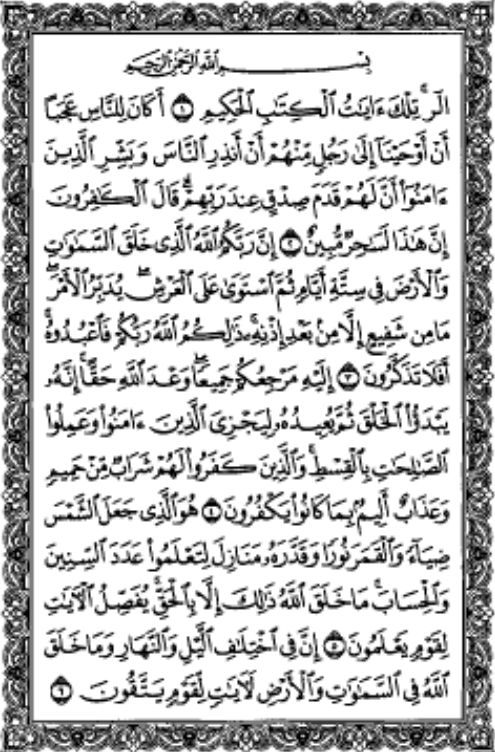 بِسْمِ ٱللَّهِ ٱلرَّحْمَٰنِ ٱلرَّحِيمِ
الٓر ۚ تِلْكَ ءَايَٰتُ ٱلْكِتَٰبِ ٱلْحَكِيمِ ۝١ أَكَانَ لِلنَّاسِ عَجَبًا
أَنْ أَوْحَيْنَآ إِلَىٰ رَجُلٍ مِّنْهُمْ أَنْ أَنذِرِ ٱلنَّاسَ وَبَشِّرِ ٱلَّذِينَ
ءَامَنُوٓا۟ أَنَّ لَهُمْ قَدَمَ صِدْقٍ عِندَ رَبِّهِمْ ۗ قَالَ ٱلْكَٰفِرُونَ
إِنَّ هَٰذَا لَسَٰحِرٌ مُّبِينٌ ۝٢ إِنَّ رَبَّكُمُ ٱللَّهُ ٱلَّذِى خَلَقَ ٱلسَّمَٰوَٰتِ
وَٱلْأَرْضَ فِى سِتَّةِ أَيَّامٍ ثُمَّ ٱسْتَوَىٰ عَلَى ٱلْعَرْشِ ۖ يُدَبِّرُ ٱلْأَمْرَ ۖ
مَا مِن شَفِيعٍ إِلَّا مِنۢ بَعْدِ إِذْنِهِۦ ۚ ذَٰلِكُمُ ٱللَّهُ رَبُّكُمْ فَٱعْبُدُوهُ ۚ
أَفَلَا تَذَكَّرُونَ ۝٣ إِلَيْهِ مَرْجِعُكُمْ جَمِيعًا ۖ وَعْدَ ٱللَّهِ حَقًّا ۚ إِنَّهُۥ
يَبْدَؤُا۟ ٱلْخَلْقَ ثُمَّ يُعِيدُهُۥ لِيَجْزِىَ ٱلَّذِينَ ءَامَنُوا۟ وَعَمِلُوا۟
ٱلصَّٰلِحَٰتِ بِٱلْقِسْطِ ۚ وَٱلَّذِينَ كَفَرُوا۟ لَهُمْ شَرَابٌ مِّنْ حَمِيمٍ
وَعَذَابٌ أَلِيمٌۢ بِمَا كَانُوا۟ يَكْفُرُونَ ۝٤ هُوَ ٱلَّذِى جَعَلَ ٱلشَّمْسَ
ضِيَآءً وَٱلْقَمَرَ نُورًا وَقَدَّرَهُۥ مَنَازِلَ لِتَعْلَمُوا۟ عَدَدَ ٱلسِّنِينَ
وَٱلْحِسَابَ ۚ مَا خَلَقَ ٱللَّهُ ذَٰلِكَ إِلَّا بِٱلْحَقِّ ۚ يُفَصِّلُ ٱلْءَايَٰتِ
لِقَوْمٍ يَعْلَمُونَ ۝٥ إِنَّ فِى ٱخْتِلَٰفِ ٱلَّيْلِ وَٱلنَّهَارِ وَمَا خَلَقَ
ٱللَّهُ فِى ٱلسَّمَٰوَٰتِ وَٱلْأَرْضِ لَءَايَٰتٍ لِّقَوْمٍ يَتَّقُونَ ۝٦